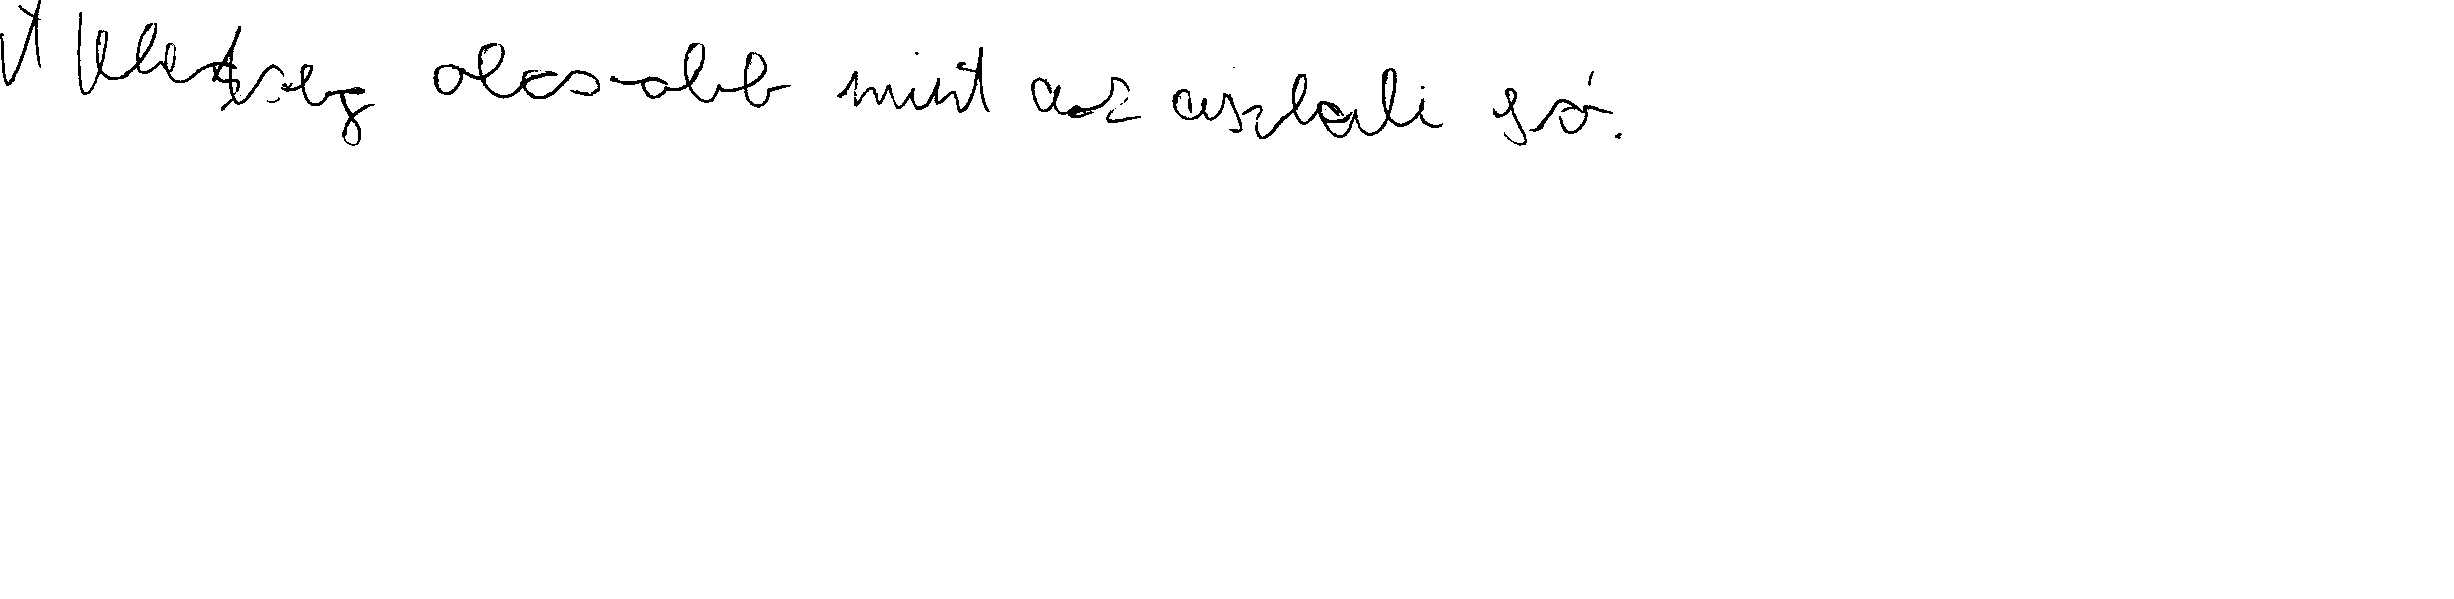 A tehetség olcsobb mint az asztali só.